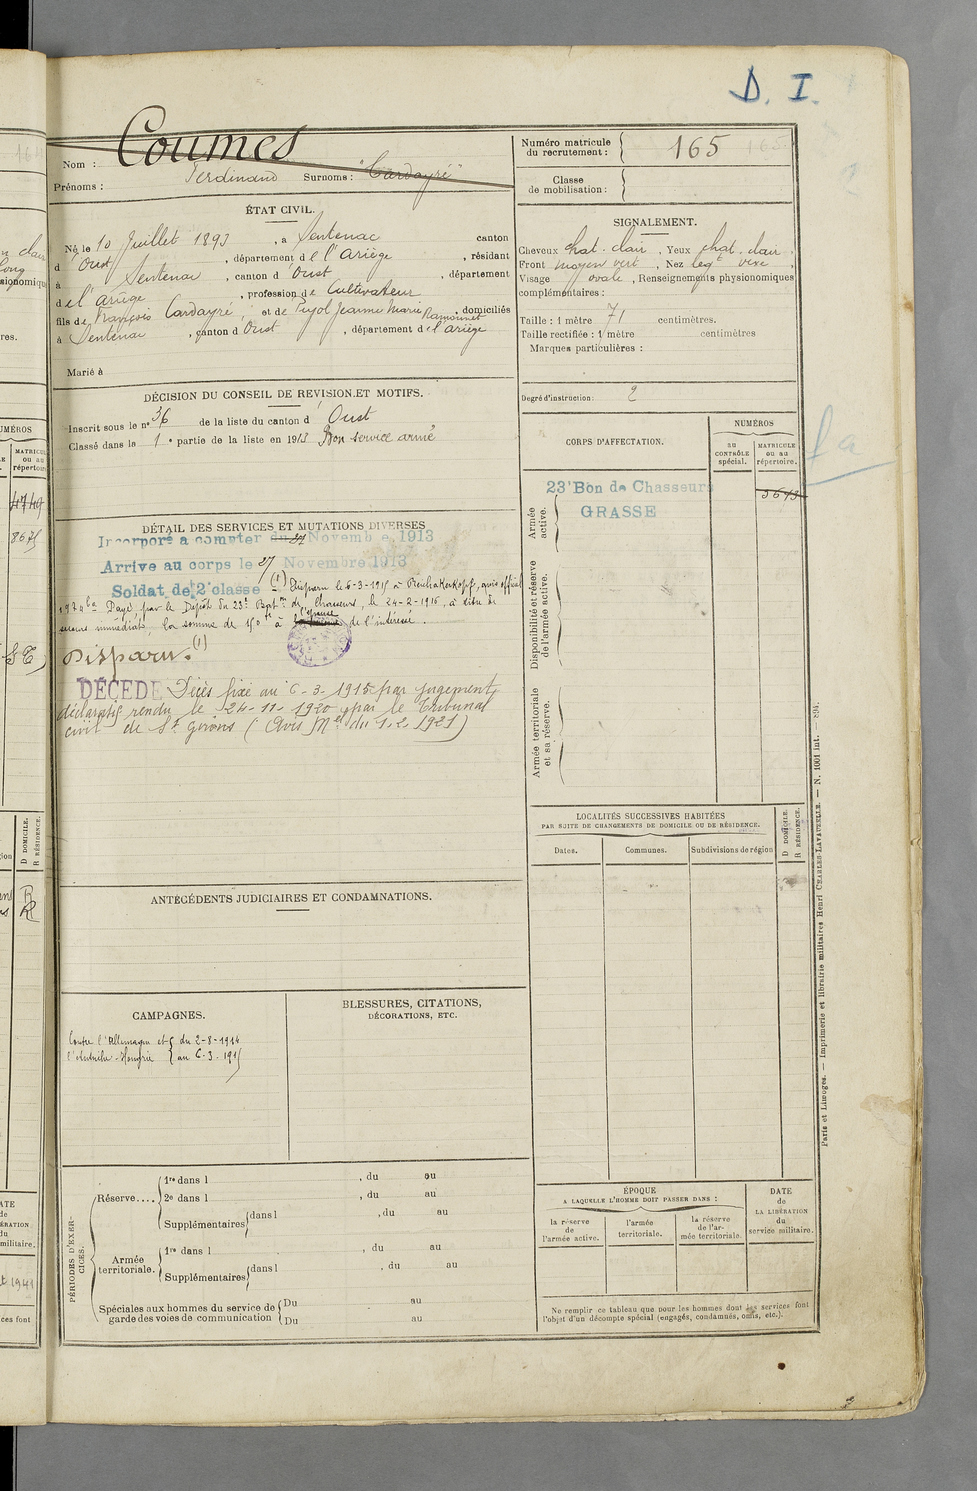 D. I.
Nom : Coumes
Prénoms : Ferdinand Surnoms : "Cardayré"
Numéro matricule du recrutement : 165
Classe de mobilisation :
ÉTAT CIVIL.
Né le 10 Juillet 1893, à Sentenac canton
d'Oust, département de l'Ariège, résidant
à Sentenac, canton d'Oust, département
de l'Ariège, profession de Cultivateur
fils de François Cardayré, et de Pujol Jeanne Marie Ramounet, domiciliés
à Sentenac, canton d'Oust, département de l'Ariège
Marié à
SIGNALEMENT.
Cheveux chat. clair, Yeux chat. clair
Front moyen vert, Nez
Visage ovale, Renseignements physionomiques
complémentaires :
Taille : 1 mètre 71 centimètres.
Taille rectifiée : 1 mètre centimètres
Marques particulières :
Degré d'instruction : 2
DÉCISION DU CONSEIL DE REVISION ET MOTIFS.
Inscrit sous le nº 36 de la liste du canton d'Oust
Classé dans la 1e partie de la liste en 1913 Bon service armé
CORPS D'AFFECTATION.
NUMÉROS
au CONTRÔLE spécial.
MATRICULE ou au répertoire.
Armée active.
23' Bon de Chasseurs
GRASSE
Disponibilité et réserve de l'armée active.
Armée territoriale et sa réserve.
DÉTAIL DES SERVICES ET MUTATIONS DIVERSES
Incorporé a compter du 27 Novembre 1913
Arrive au corps le 27 Novembre 1913
Soldat de 2e classe (1) Disparu le 6-3-1915 à Reichakerkopf, avis officiel
Payé, par le Dépôt du 23e Bat.on de Chasseurs, le 24-2-1916, à titre de
secours immédiat, la somme de 150 fr à l'épouse de l'intéressé.
Disparu. (1)
DÉCÉDÉ Décès fixé au 6-3-1915 par jugement
déclaratif rendu le 24-11-1920 par le Tribunal
civil de St Girons (Avis Mel du 1.2.1921)
LOCALITÉS SUCCESSIVES HABITÉES
PAR SUITE DE CHANGEMENTS DE DOMICILE OU DE RÉSIDENCE.
Dates. Communes. Subdivisions de région
D DOMICILE.
R RÉSIDENCE.
ANTÉCÉDENTS JUDICIAIRES ET CONDAMNATIONS.
CAMPAGNES.
Contre l'Allemagne et { du 2-8-1914
l'Autriche-Hongrie { au 6-3-1915
BLESSURES, CITATIONS,
DÉCORATIONS, ETC.
PÉRIODES D'EXERCICES.
Réserve.... 1re dans l , du au
2e dans l , du au
Supplémentaires dans l , du au
Armée territoriale. 1re dans l , du au
Supplémentaires dans l , du au
Spéciales aux hommes du service de Du au
garde des voies de communication Du au
ÉPOQUE
A LAQUELLE L'HOMME DOIT PASSER DANS :
la réserve de l'armée active.
l'armée territoriale.
la réserve de l'armée territoriale.
DATE de LA LIBÉRATION du service militaire.
Ne remplir ce tableau que pour les hommes dont les services font
l'objet d'un décompte spécial (engagés, condamnés, omis, etc.).
Paris et Limoges. — Imprimerie et librairie militaires Henri CHARLES-LAVAUZELLE. — N. 1001 int.